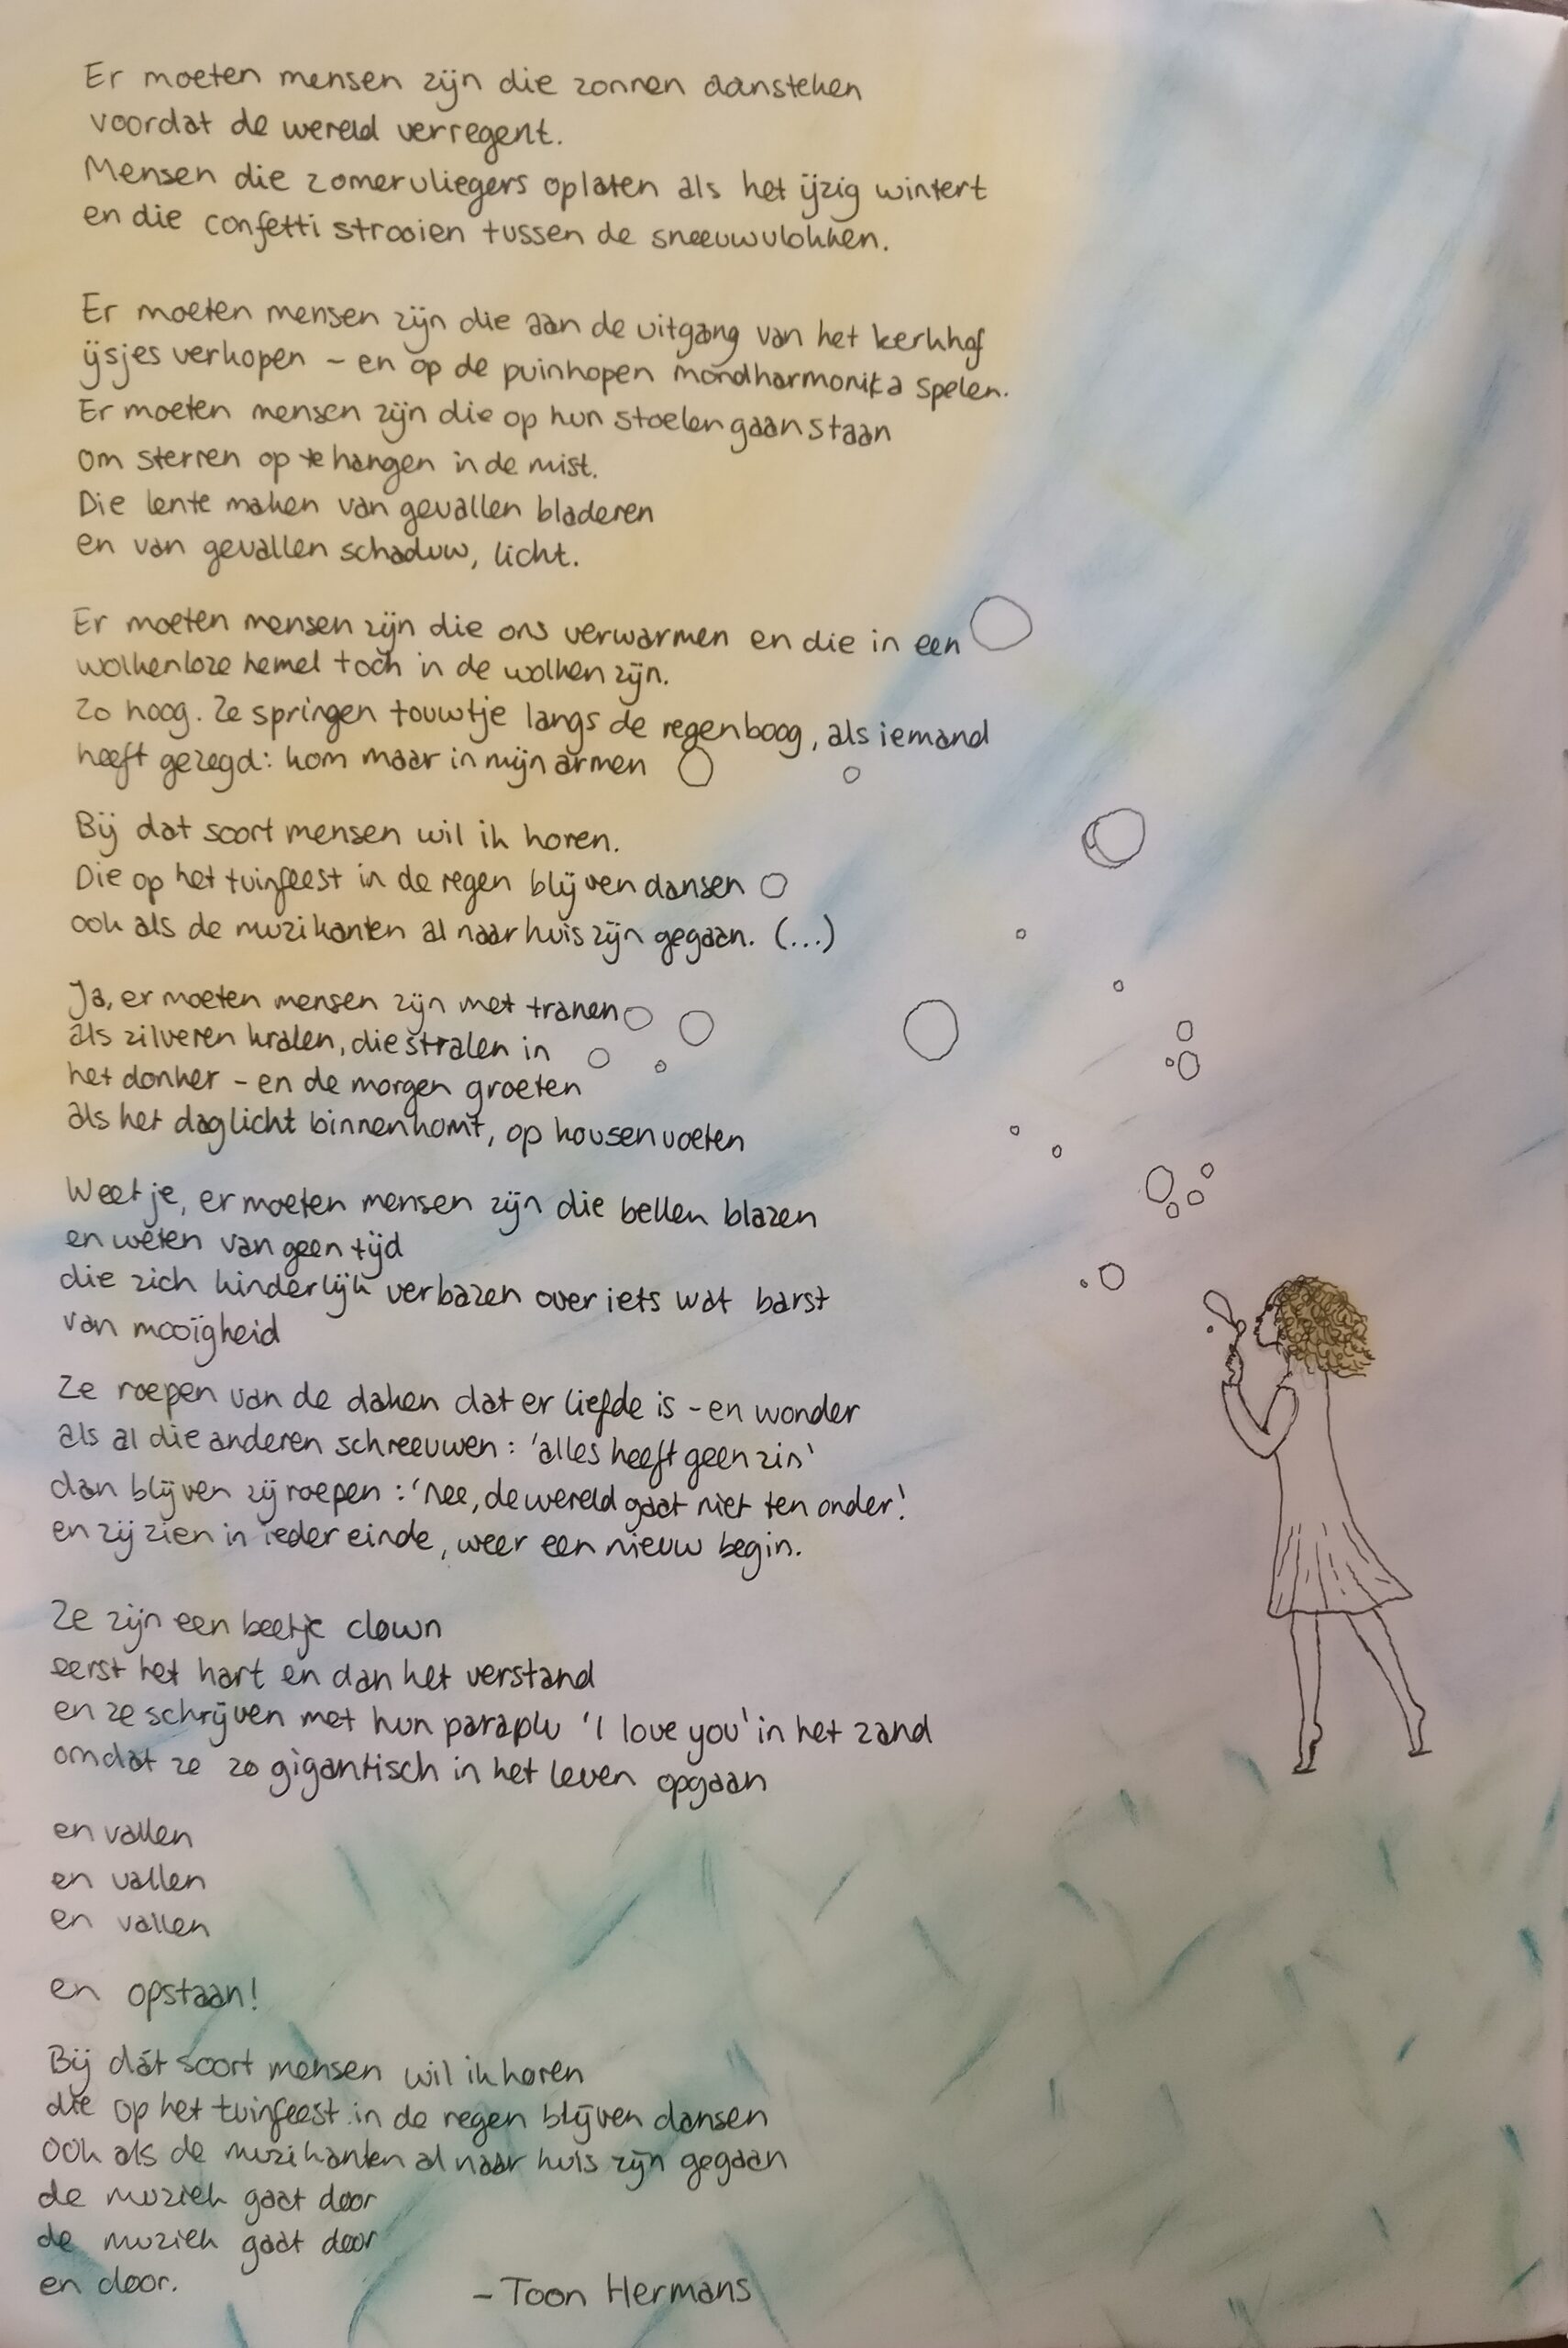 Er moeten mensen zijn die zonnen aansteken
voordat de wereld verregent.
Mensen die zomervliegers oplaten als het ijzig wintert
en die confetti strooien tussen de sneeuwvlokken.
Er moeten mensen zijn die aan de uitgang van het kerkhof
ijsjes verkopen – en op de puinhopen mondharmonika spelen.
Er moeten mensen zijn die op hun stoelen gaan staan
om sterren op te hangen in de mist.
Die lente maken van gevallen bladeren
en van gevallen schaduw, licht.
Er moeten mensen zijn die ons verwarmen en die in een
wolkenloze hemel toch in de wolken zijn.
Zo hoog. Ze springen touwtje langs de regenboog, als iemand
heeft gezegd: kom maar in mijn armen
Bij dat soort mensen wil ik horen.
Die op het tuinfeest in de regen blijven dansen
ook als de muzikanten al naar huis zijn gegaan. (...)
Ja, er moeten mensen zijn met tranen
als zilveren kralen, die stralen in
het donker – en de morgen groeten
als het daglicht binnenkomt, op kousenvoeten
Weet je, er moeten mensen zijn die bellen blazen
en weten van geen tijd
die zich kinderlijk verbazen over iets wat barst
van mooïgheid
Ze roepen van de daken dat er liefde is – en wonder
als al die anderen schreeuwen: 'alles heeft geen zin'
dan blijven zij roepen: 'nee, de wereld gaat niet ten onder!
en zij zien in ieder einde, weer een nieuw begin.
Ze zijn een beetje clown
eerst het hart en dan het verstand
en ze schrijven met hun paraplu 'I love you' in het zand
omdat ze zo gigantisch in het leven opgaan
en vallen
en vallen
en vallen
en opstaan!
Bij dát soort mensen wil ik horen
die op het tuinfeest in de regen blijven dansen
ook als de muzikanten al naar huis zijn gegaan
de muziek gaat door
de muziek gaat door
en door.
– Toon Hermans